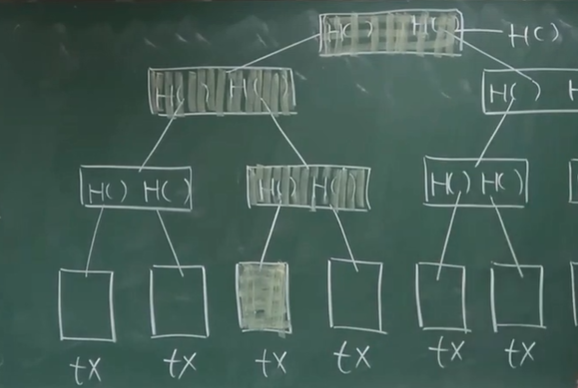 H() H() H()
H() H() H() H
H() H() H() H() H() H()
tx tx tx tx tx tx